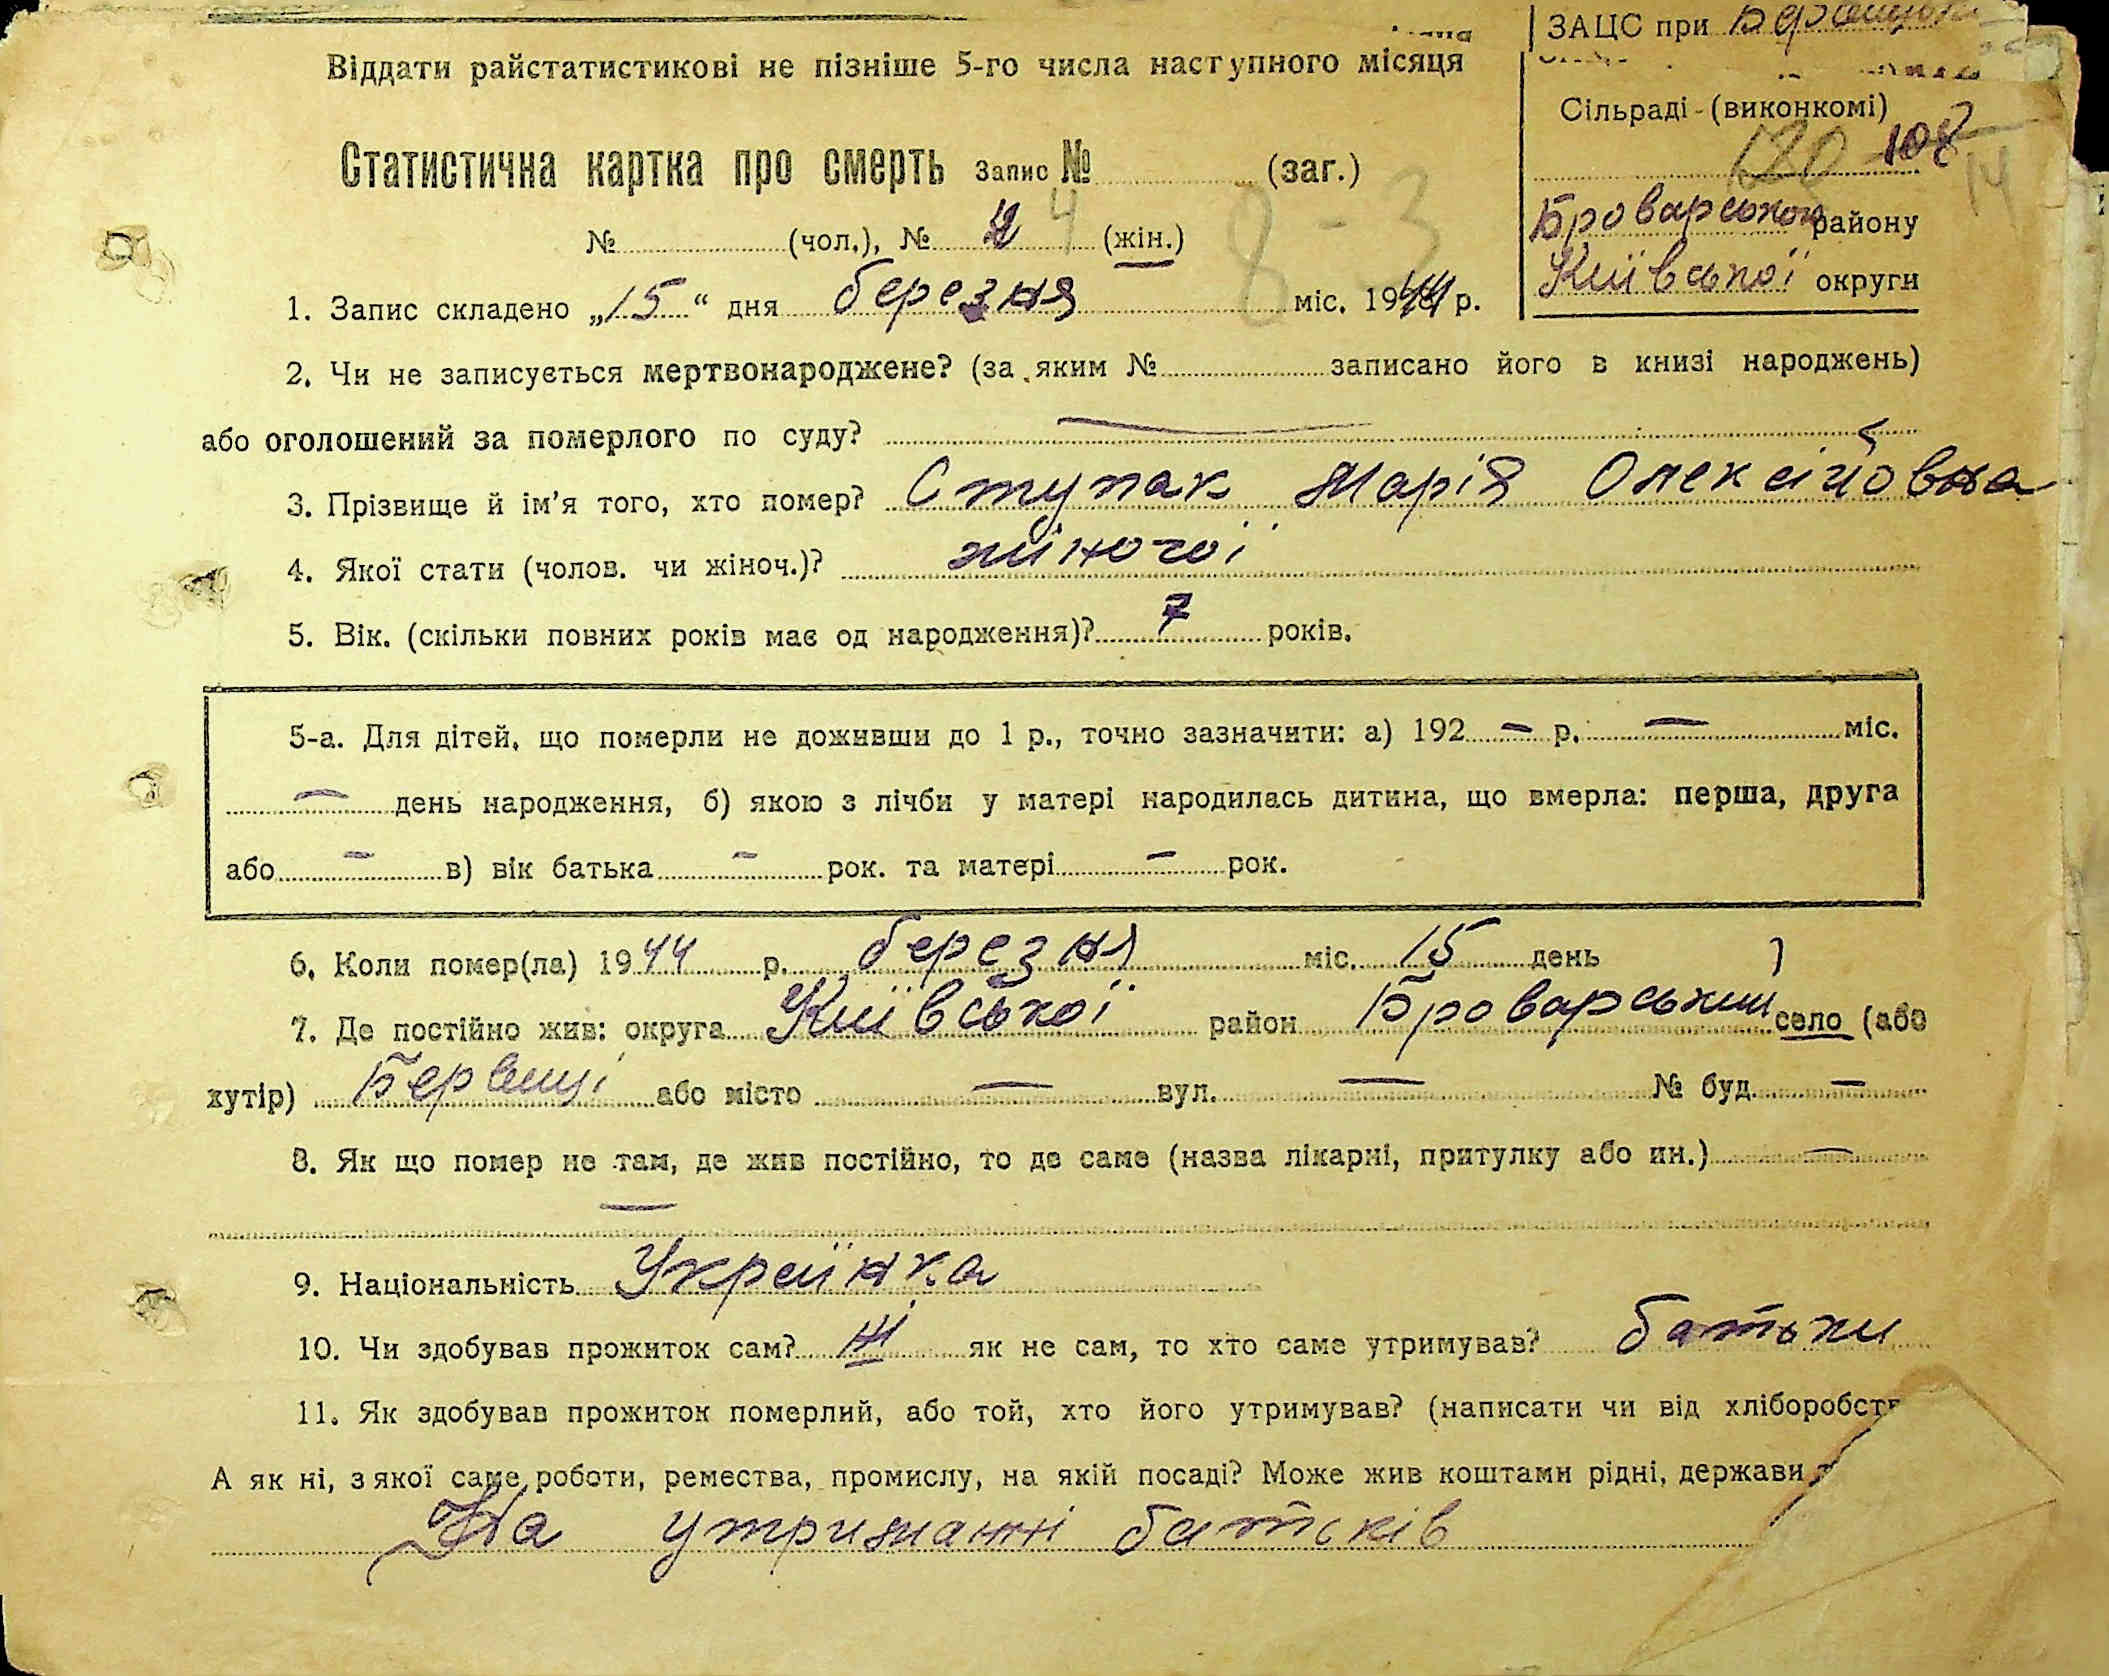 ЗАЦС при
Віддати райстатистикові не пізніше 5-го числа наступного місяця
Сільраді - (виконкомі)
120 108
14
Статистична картка про смерть Запис № (заг.)
Броварського району
№ (чол.), № 4 (жін.) 8 - 3
Київської округи
1. Запис складено „15“ дня березня міс. 1944 р.
2. Чи не записується мертвонароджене? (за яким № записано його в книзі народжень)
або оголошений за померлого по суду? —
3. Прізвище й ім'я того, хто помер? Ступак Марія Олексійовна
4. Якої стати (чолов. чи жіноч.)? жіночої
5. Вік. (скільки повних років має од народження)? 7 років.
5-а. Для дітей, що померли не доживши до 1 р., точно зазначити: а) 192 — р. — міс.
— день народження, б) якою з лічби у матері народилась дитина, що вмерла: перша, друга
або — в) вік батька — рок. та матері — рок.
6. Коли помер(ла) 1944 р. березня міс. 15 день
7. Де постійно жив: округа Київської район Броварський село (або
хутір) Бервиці або місто — вул. — № буд. —
8. Як що помер не там, де жив постійно, то де саме (назва лікарні, притулку або ин.) —
—
9. Національність Українка
10. Чи здобував прожиток сам? Ні як не сам, то хто саме утримував? батьки
11. Як здобував прожиток померлий, або той, хто його утримував? (написати чи від хліборобств
А як ні, з якої саме роботи, ремества, промислу, на якій посаді? Може жив коштами рідні, держави
На утриманні батьків